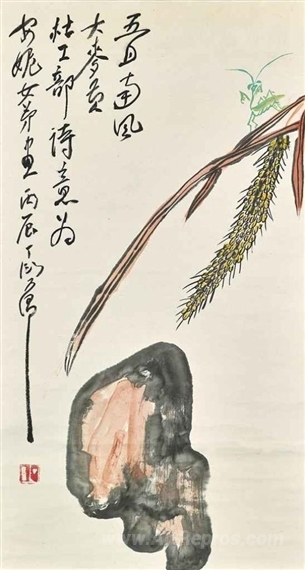 五月南風
大麥黃
杜工部詩意為
安妮女弟畫 丙辰 丁衍庸